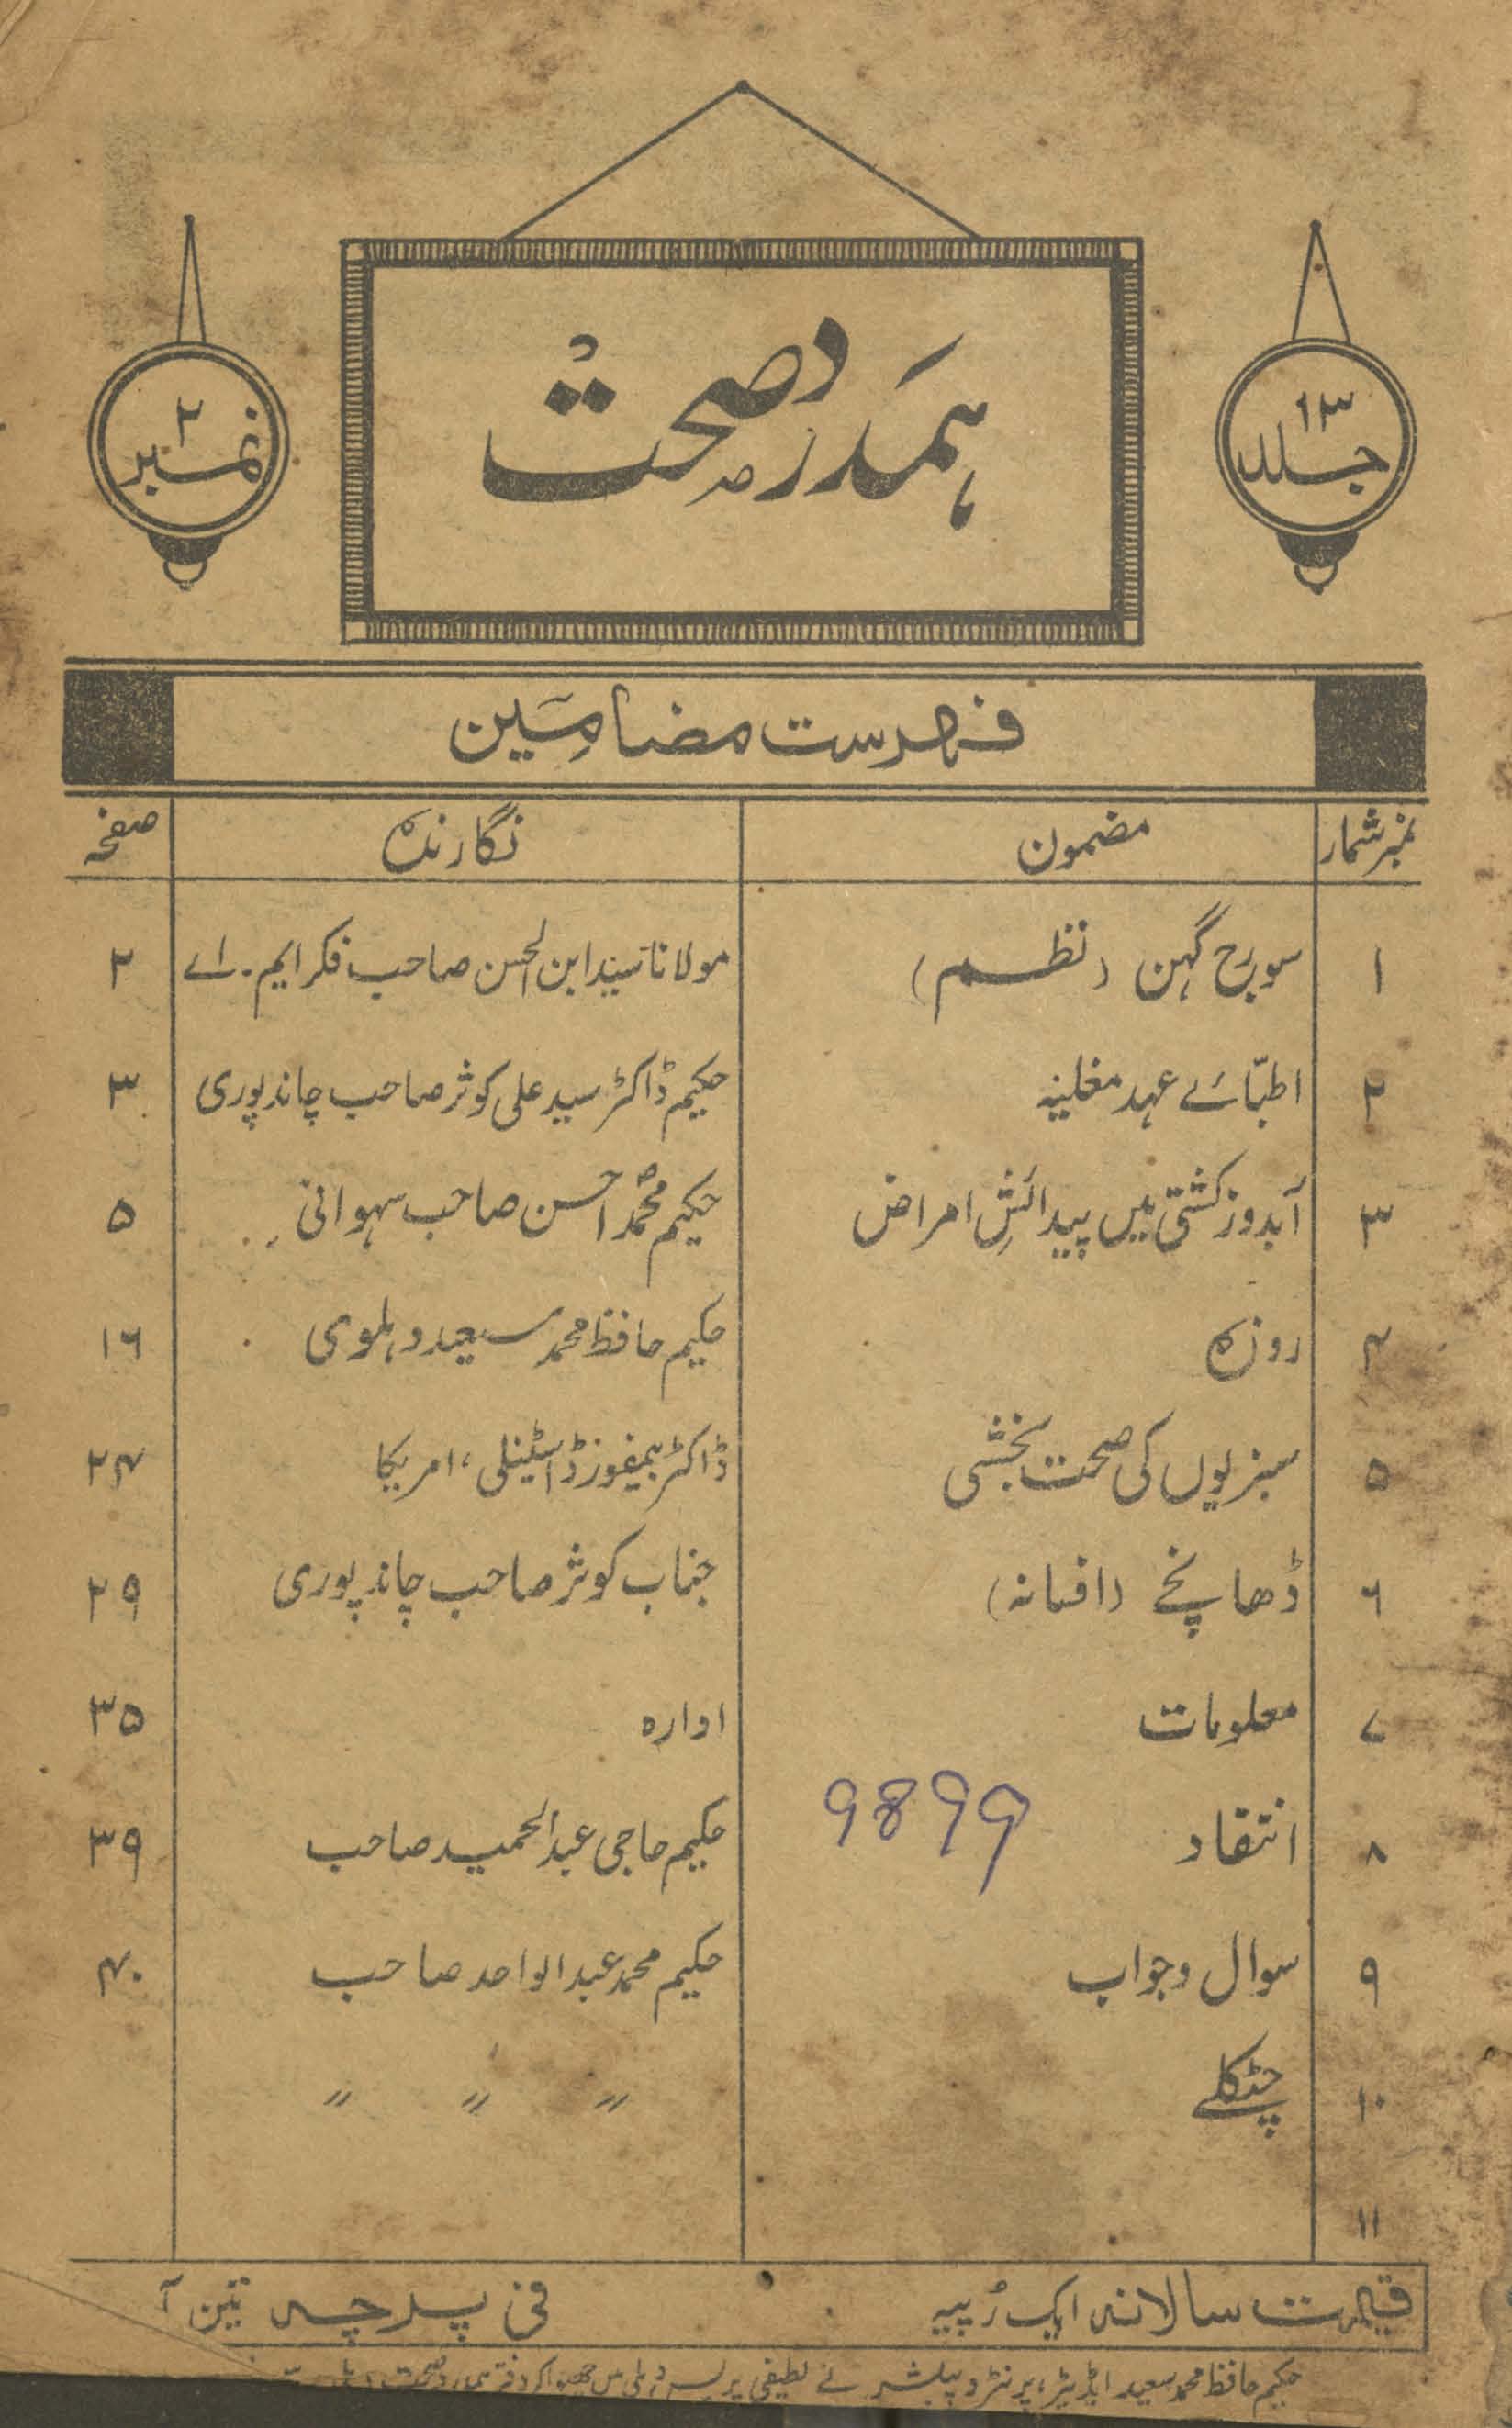 ہمدرد صحت
جلد ۱۳
نمبر ۲
فہرست مضامین
نمبر شمار مضمون نگارندہ صفحہ
۱ سورج گہن (نظم) مولانا سید ابن الحسن صاحب فکر ایم۔اے ۲
۲ اطبّائے عہد مغلیہ حکیم ڈاکٹر سید علی کوثر صاحب چاندپوری ۳
۳ آبدوز کشتی میں پیدائشِ امراض حکیم محمد احسن صاحب سہوانی ۵
۴ روزہ حکیم حافظ محمد سعید دہلوی ۱۶
۵ سبزیوں کی صحت بخشی ڈاکٹر بمیفورڈ اسٹینلی، امریکا ۲۴
۶ ڈھانچے (افسانہ) جناب کوثر صاحب چاندپوری ۲۹
۷ معلومات ادارہ ۳۵
۸ انتقاد حکیم حاجی عبدالحمید صاحب ۳۹
9899
۹ سوال وجواب حکیم محمد عبدالواحد صاحب ۴۰
۱۰ چٹکلے 〃 〃 〃
۱۱
قیمت سالانہ ایک رُپیہ فی پرچہ تین آ
حکیم حافظ محمد سعید ایڈیٹر، پرنٹر و پبلشر نے لطیفی پریس دہلی میں چھپوا کر دفتر ہمدرد صحت